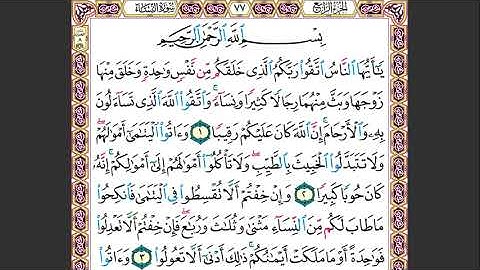 الجزء الرابع ٧٧ سورة النساء
بِسْمِ اللَّهِ الرَّحْمَٰنِ الرَّحِيمِ
يَٰٓأَيُّهَا النَّاسُ اتَّقُوا۟ رَبَّكُمُ الَّذِى خَلَقَكُم مِّن نَّفْسٍ وَٰحِدَةٍ وَخَلَقَ مِنْهَا
زَوْجَهَا وَبَثَّ مِنْهُمَا رِجَالًا كَثِيرًا وَنِسَآءً ۚ وَاتَّقُوا۟ اللَّهَ الَّذِى تَسَآءَلُونَ
بِهِۦ وَالْأَرْحَامَ ۚ إِنَّ اللَّهَ كَانَ عَلَيْكُمْ رَقِيبًا ١ وَءَاتُوا۟ الْيَتَٰمَىٰٓ أَمْوَٰلَهُمْ ۖ
وَلَا تَتَبَدَّلُوا۟ الْخَبِيثَ بِالطَّيِّبِ ۖ وَلَا تَأْكُلُوٓا۟ أَمْوَٰلَهُمْ إِلَىٰٓ أَمْوَٰلِكُمْ ۚ إِنَّهُۥ
كَانَ حُوبًا كَبِيرًا ٢ وَإِنْ خِفْتُمْ أَلَّا تُقْسِطُوا۟ فِى الْيَتَٰمَىٰ فَانكِحُوا۟
مَا طَابَ لَكُم مِّنَ النِّسَآءِ مَثْنَىٰ وَثُلَٰثَ وَرُبَٰعَ ۖ فَإِنْ خِفْتُمْ أَلَّا تَعْدِلُوا۟
فَوَٰحِدَةً أَوْ مَا مَلَكَتْ أَيْمَٰنُكُمْ ۚ ذَٰلِكَ أَدْنَىٰٓ أَلَّا تَعُولُوا۟ ٣ وَءَاتُوا۟